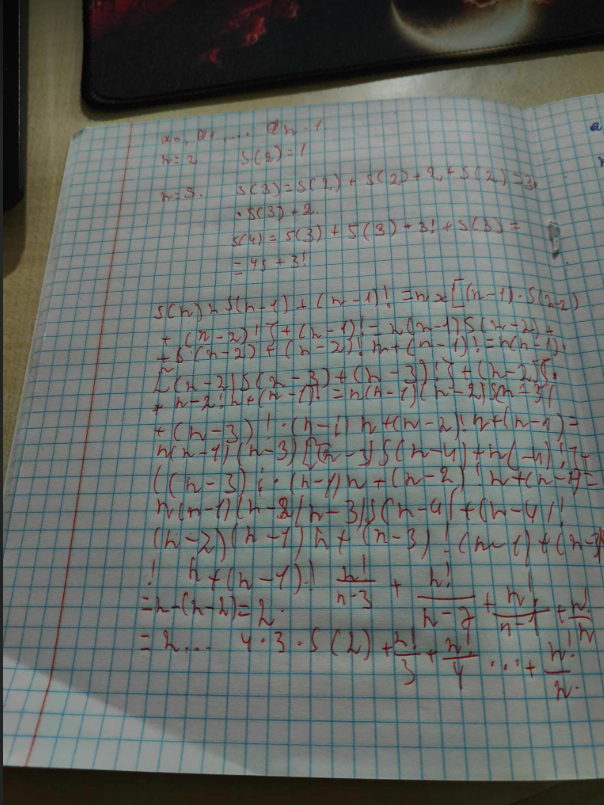 a₀, a₁, ... a n-1
n=2 S(2)=1
n=3. S(3)=S(2)+S(2)+2+S(2)=3·
·S(2)+2
S(4)=S(3)+S(3)+3!+S(3)=
=4S+3!
S(n)=nS(n-1)+(n-1)!=n×[(n-1)·S(n-2)
+(n-2)!]+(n-1)!=n(n-1)S(n-2)+
(n-2)!n+(n-1)!=n(n-1)·
[(n-2)S(n-3)+(n-3)!]+(n-2)!·
n-2!n+(n-1)!=n(n-1)(n-2)S(n-3)
+(n-3)!·(n-1)n+(n-2)!n+(n-1)=
n(n-1)(n-3)[(n-3)S(n-4)+n(-4)!]+
((n-3)!·(n-1)n+(n-2)!n+(n-1)=
n(n-1)(n-2)(n-3)S(n-4)+(n-4)!
(n-2)(n-1)n+(n-3)!(n-1)+(n-3)
!n+(n-1)! n!/n-3 + n!/n-2 + n!/n-1 + n!/n
=n-(n-2)=2.
=2... 4·3·S(2)+n!/3+n!/4...+n!/n.